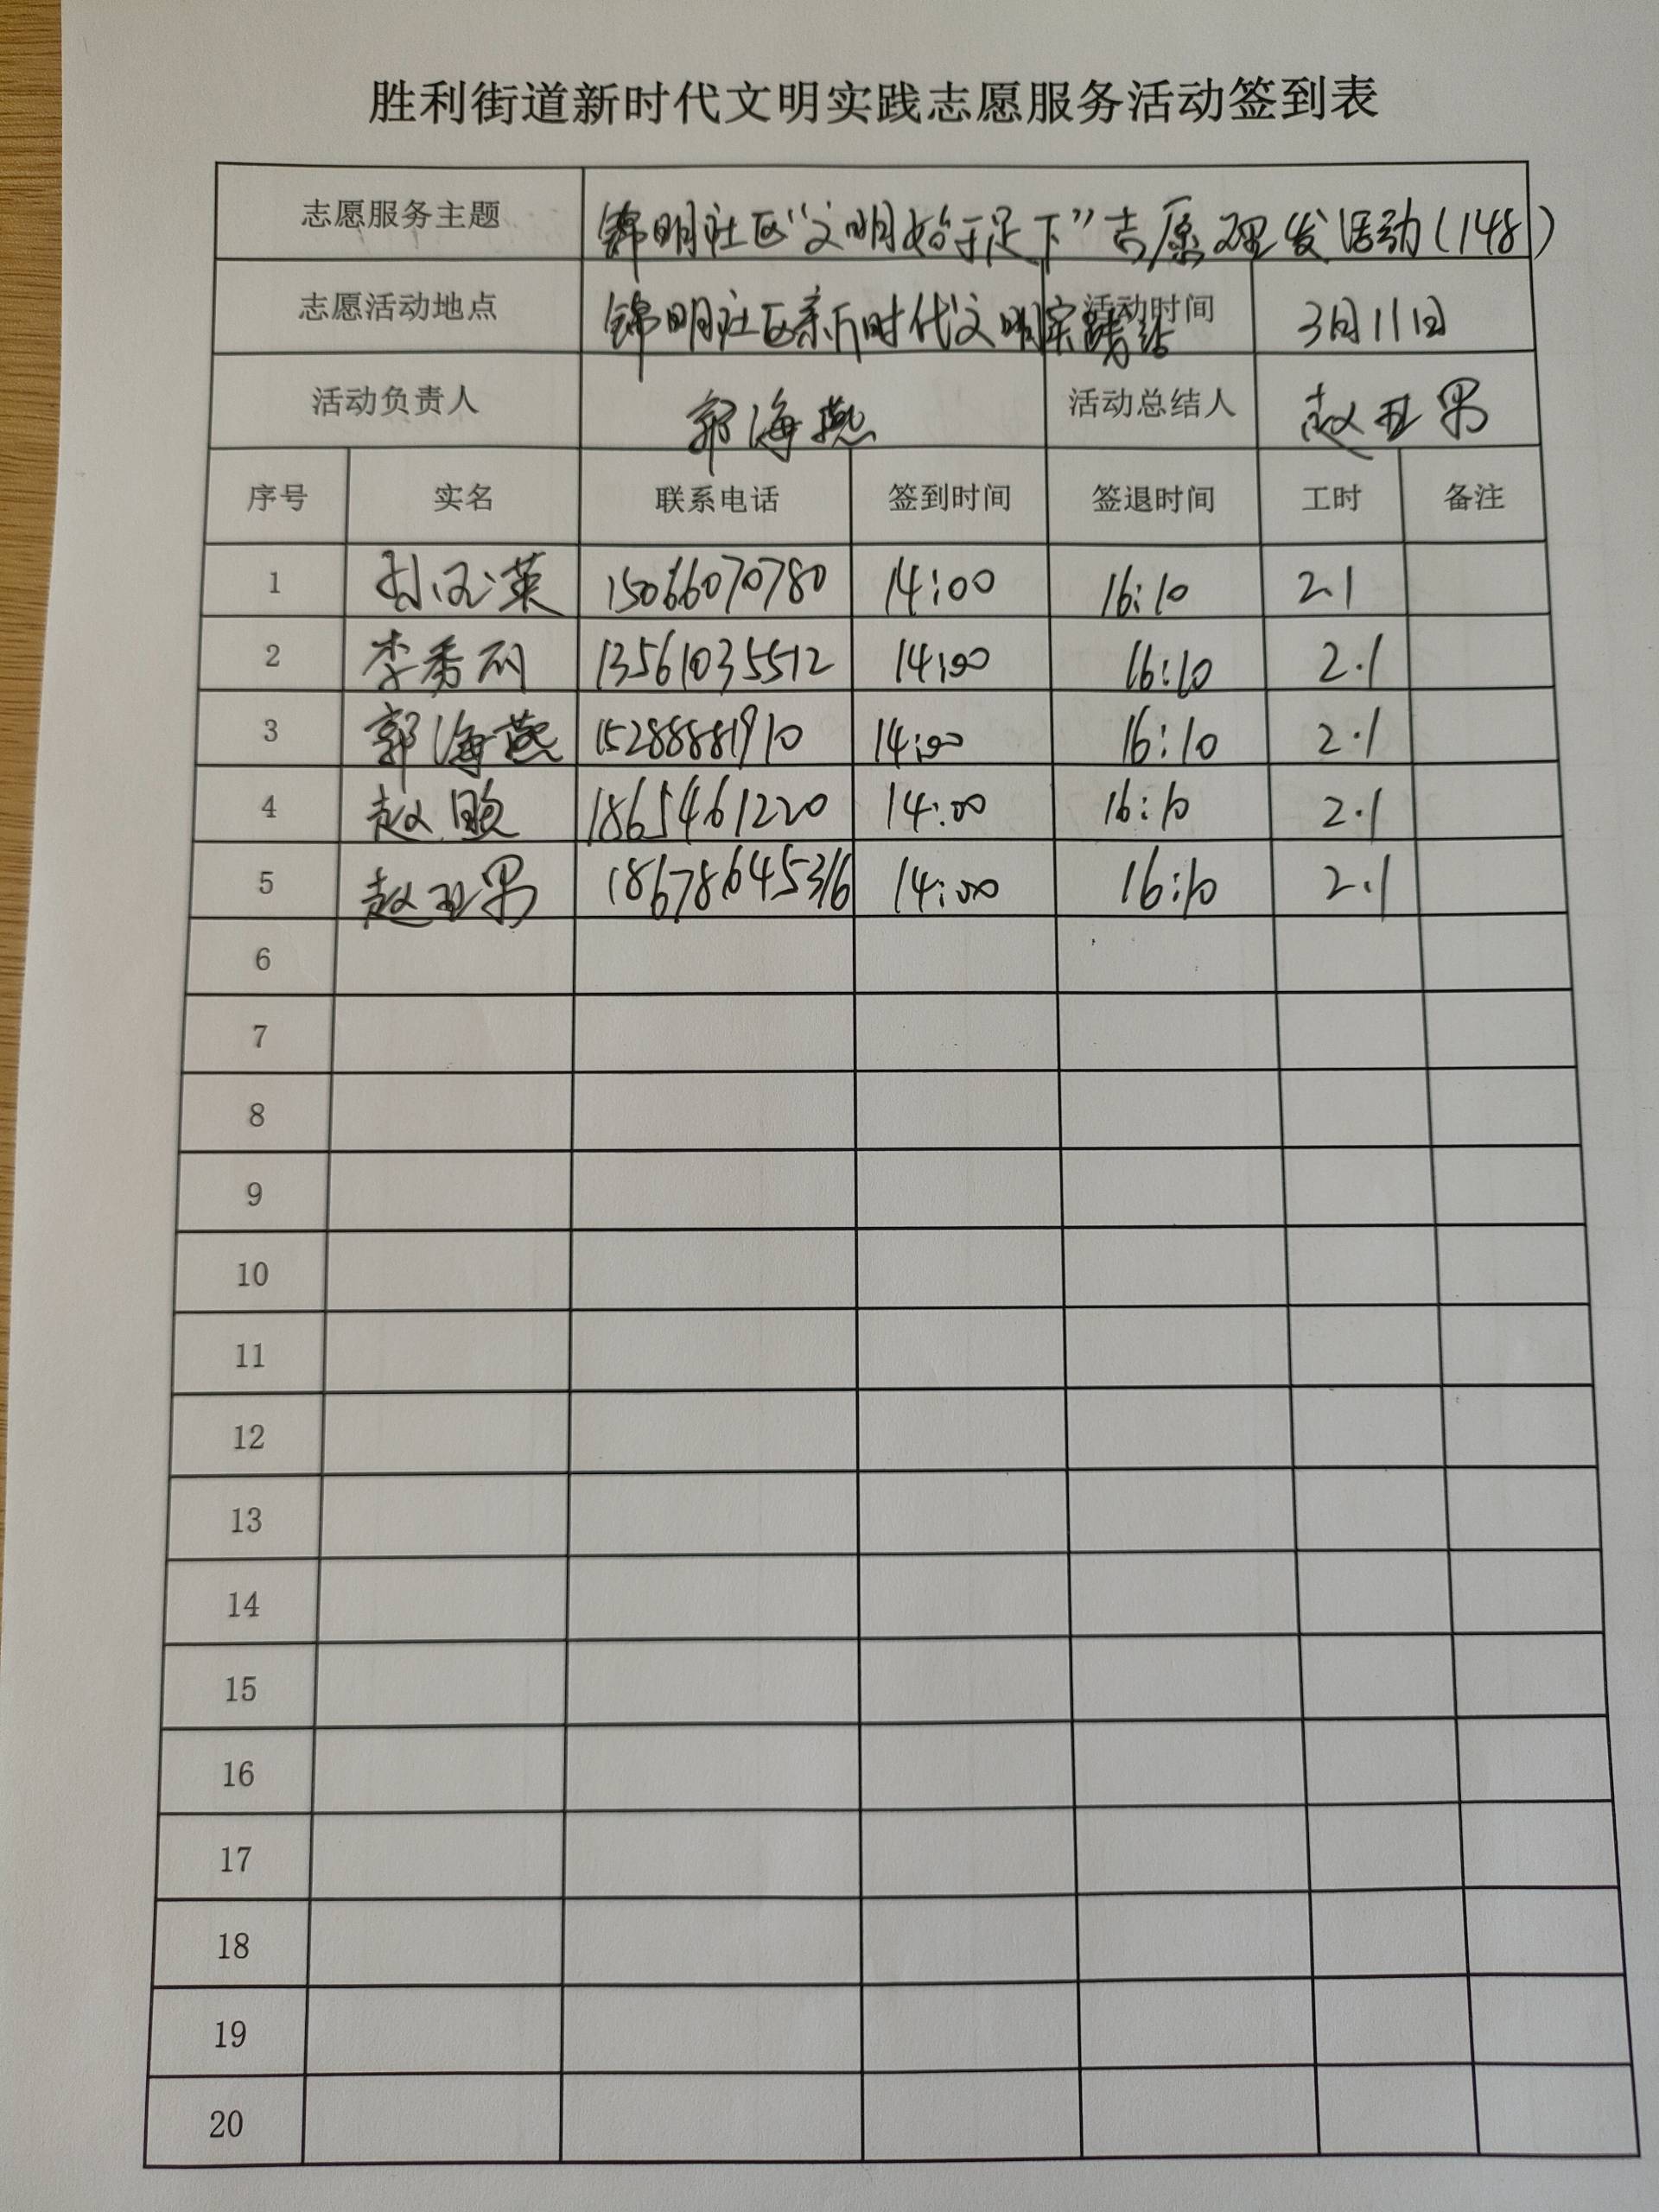 胜利街道新时代文明实践志愿服务活动签到表
志愿服务主题 锦明社区“文明始于足下”志愿理发活动(148)
志愿活动地点 锦明社区新时代文明实践站 活动时间 3月11日
活动负责人 郭海燕 活动总结人 赵亚男
序号 实名 联系电话 签到时间 签退时间 工时 备注
1 孙玉英 15066070780 14:00 16:10 2.1
2 李秀丽 13561035512 14:00 16:10 2.1
3 郭海燕 15288881910 14:00 16:10 2.1
4 赵 1865461220 14:00 16:10 2.1
5 赵亚男 18678645316 14:00 16:10 2.1
6
7
8
9
10
11
12
13
14
15
16
17
18
19
20